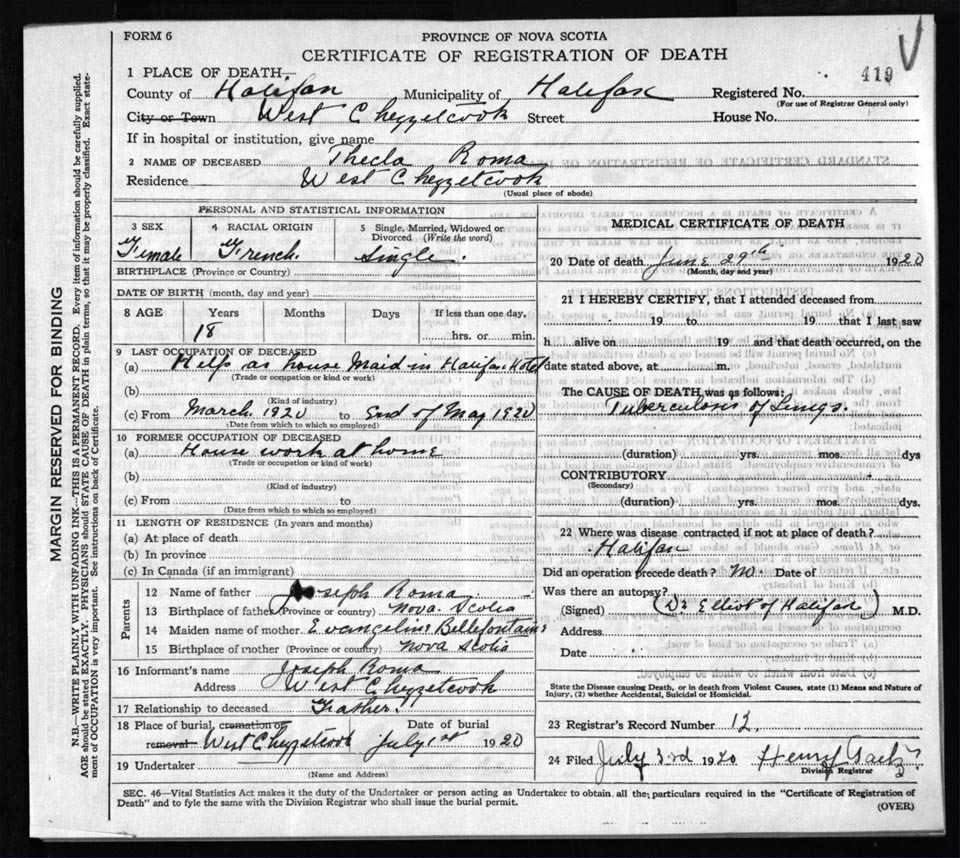 FORM 6
PROVINCE OF NOVA SCOTIA
CERTIFICATE OF REGISTRATION OF DEATH
419
1 PLACE OF DEATH—
County of Halifax Municipality of Halifax Registered No.
(For use of Registrar General only)
City or Town West Chezzetcook Street House No.
If in hospital or institution, give name
2 NAME OF DECEASED Thecla Roma
Residence West Chezzetcook
(Usual place of abode)
MARGIN RESERVED FOR BINDING
N.B.—WRITE PLAINLY WITH UNFADING INK—THIS IS A PERMANENT RECORD. Every item of information should be carefully supplied.
AGE should be stated EXACTLY. PHYSICIANS should STATE CAUSE OF DEATH in plain terms, so that it may be properly classified. Exact state-
ment of OCCUPATION is very important. See instructions on back of Certificate.
PERSONAL AND STATISTICAL INFORMATION
3 SEX 4 RACIAL ORIGIN 5 Single, Married, Widowed or
Divorced (Write the word)
Female French Single.
BIRTHPLACE (Province or Country)
DATE OF BIRTH (month, day and year)
8 AGE Years Months Days If less than one day,
18 hrs. or min.
9 LAST OCCUPATION OF DECEASED
(a) Help as house Maid in Halifax Hotel
(Trade or occupation or kind of work)
(b)
(Kind of industry)
(c) From March 1920 to End of May 1920
(Date from which to which so employed)
10 FORMER OCCUPATION OF DECEASED
(a) House work at home
(Trade or occupation or kind of work)
(b)
(Kind of industry)
(c) From to
(Date from which to which so employed)
11 LENGTH OF RESIDENCE (In years and months)
(a) At place of death
(b) In province
(c) In Canada (if an immigrant)
Parents
12 Name of father Joseph Roma
13 Birthplace of father (Province or country) Nova Scotia
14 Maiden name of mother Evangeline Bellefontaine
15 Birthplace of mother (Province or country) Nova Scotia
16 Informant's name Joseph Roma
Address West Chezzetcook
17 Relationship to deceased Father.
18 Place of burial, cremation or Date of burial
removal West Chezzetcook July 1st 1920
19 Undertaker
(Name and Address)
MEDICAL CERTIFICATE OF DEATH
20 Date of death June 29th 1920
(Month, day and year)
21 I HEREBY CERTIFY, that I attended deceased from
19 to 19 that I last saw
h alive on 19 and that death occurred, on the
date stated above, at m.
The CAUSE OF DEATH was as follows:
Tuberculosis of Lungs.
(duration) yrs. mos. dys
CONTRIBUTORY
(Secondary)
(duration) yrs. mos. dys.
22 Where was disease contracted if not at place of death?
Halifax
Did an operation precede death? No Date of
Was there an autopsy?
(Signed) (Dr Elliot of Halifax) M.D.
Address
Date
State the Disease causing Death, or in death from Violent Causes, state (1) Means and Nature of
Injury, (2) whether Accidental, Suicidal or Homicidal.
23 Registrar's Record Number 12,
24 Filed July 3rd 1920 Henry
Division Registrar
SEC. 46—Vital Statistics Act makes it the duty of the Undertaker or person acting as Undertaker to obtain all the particulars required in the "Certificate of Registration of
Death" and to fyle the same with the Division Registrar who shall issue the burial permit.
(OVER)